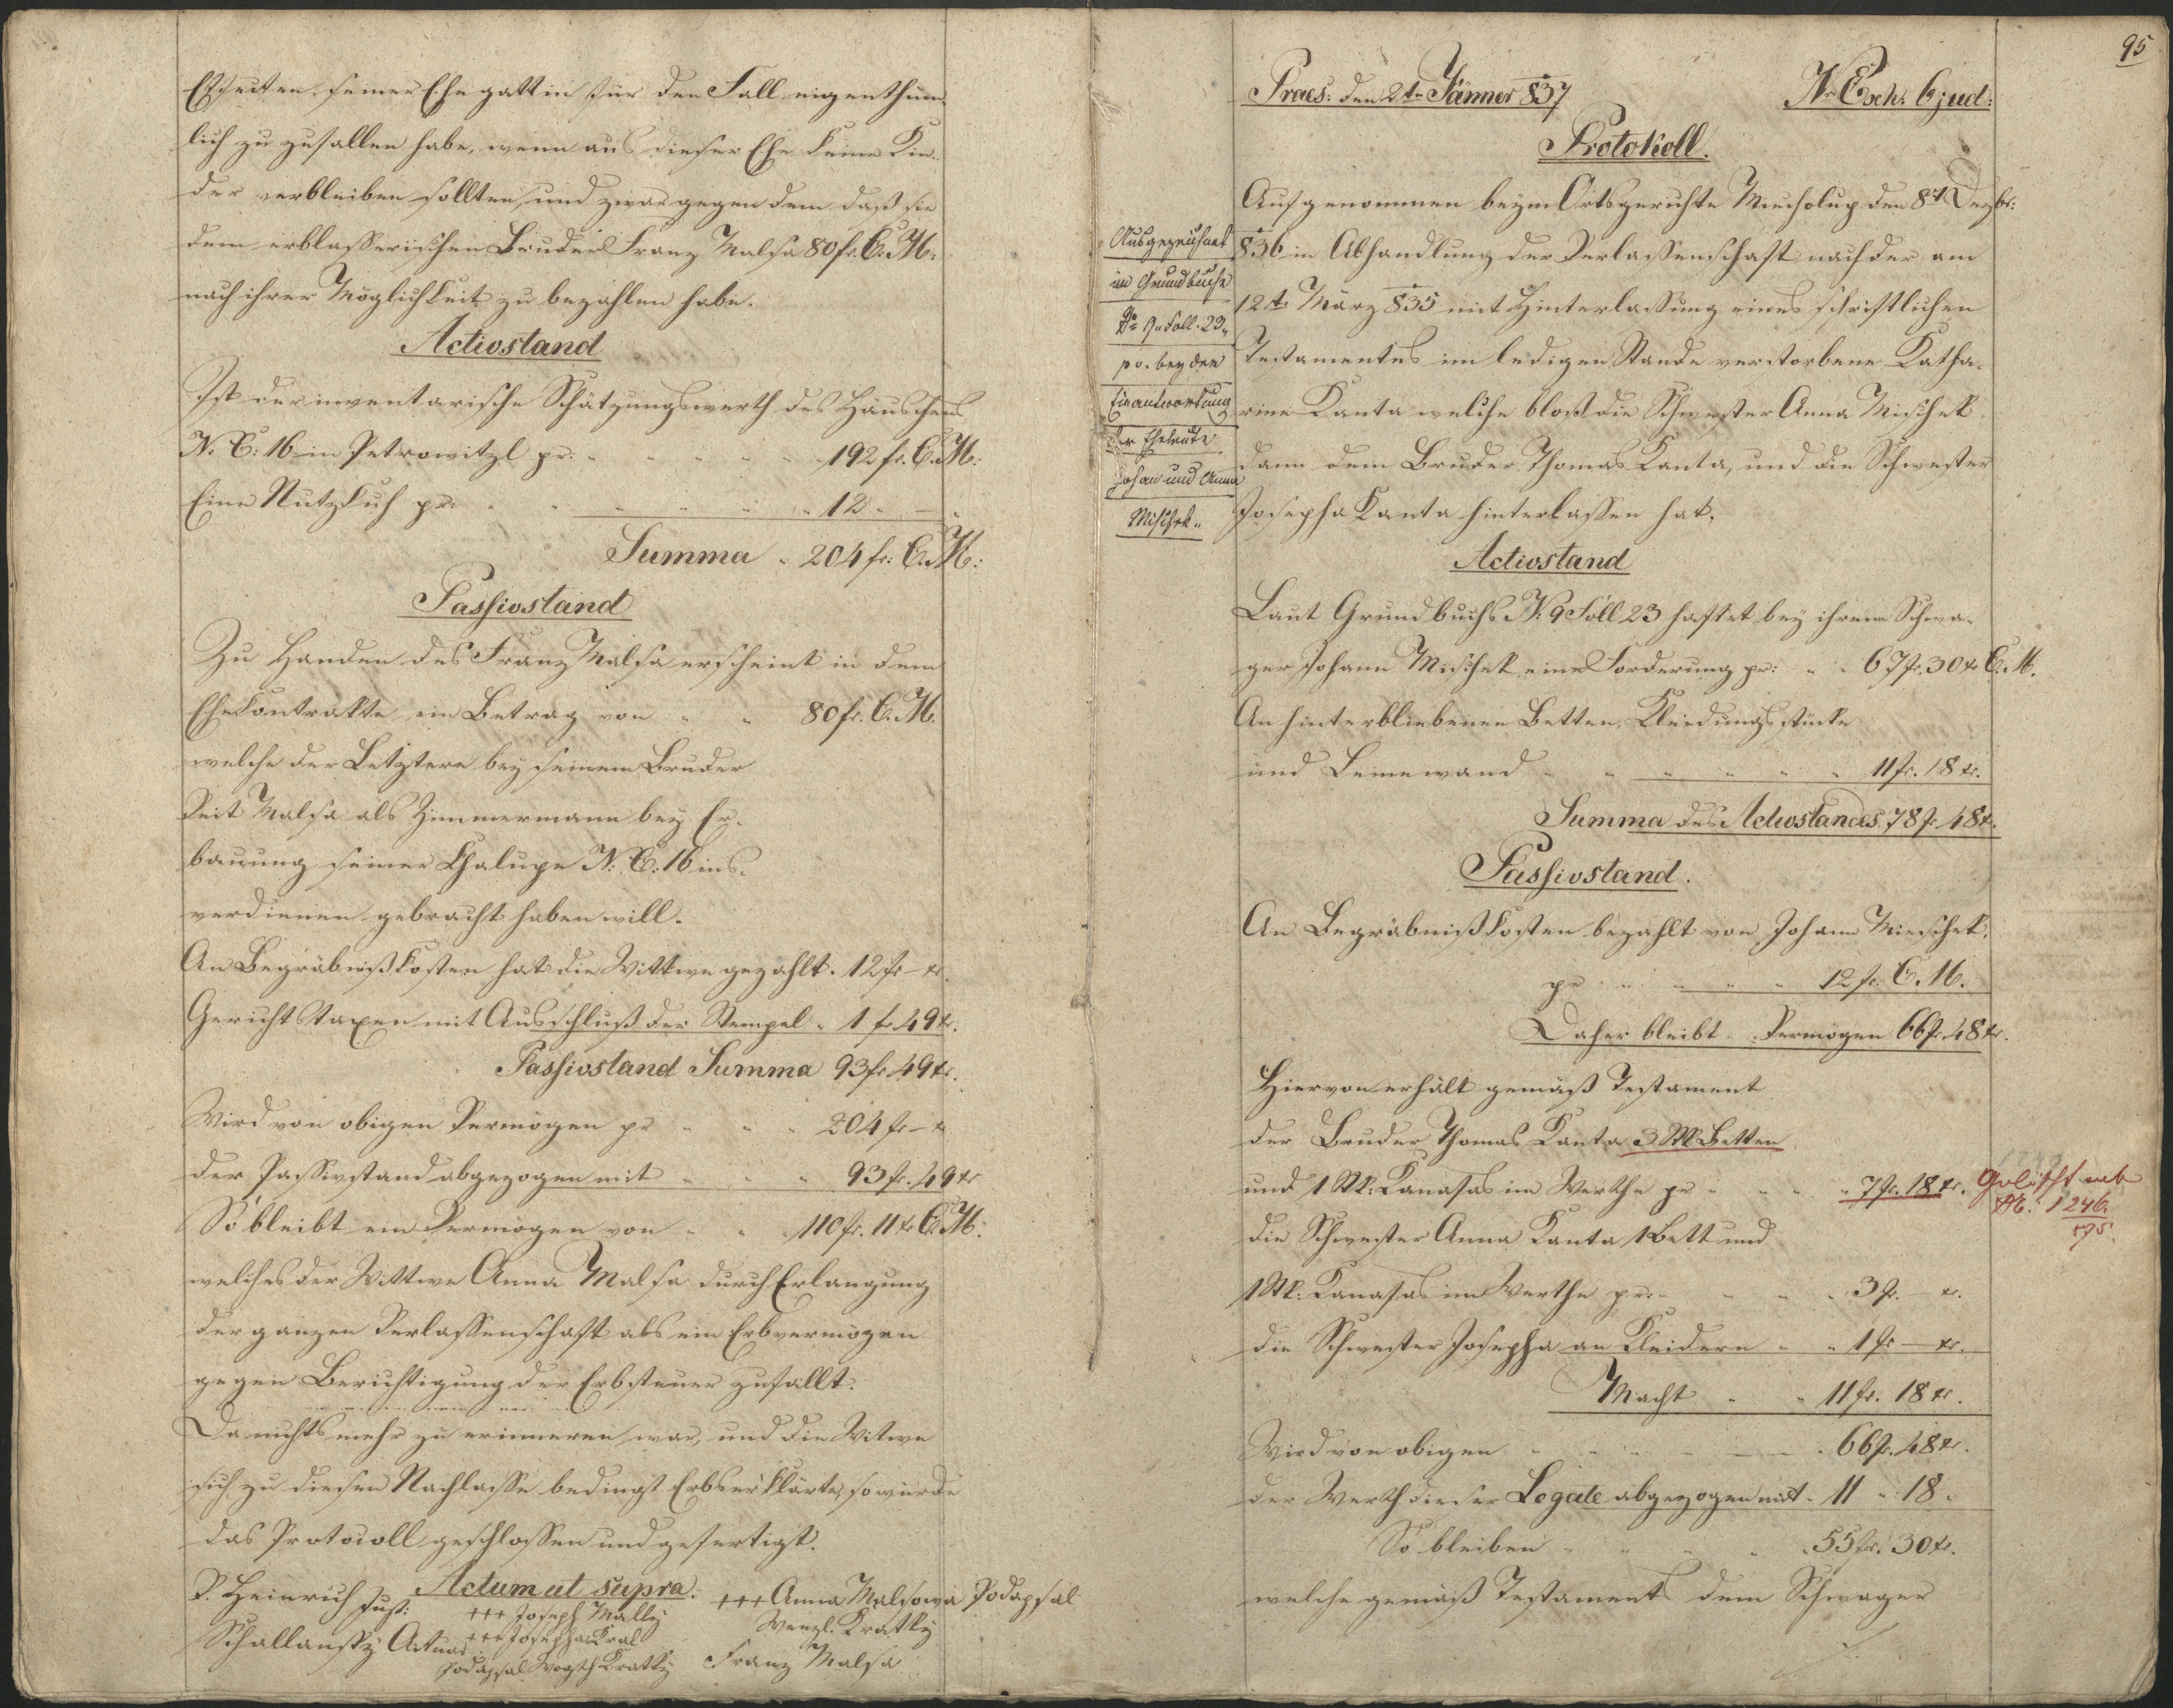 Effecten seiner Ehegattin für den Fall eigenthüm-
lich zu zufallen habe, wenn aus dieser Ehe keine Kin-
der verbleiben sollten, und zwar gegen dem daß sie
dem erblasserischen Bruder Franz Malsa 80 fr. C. M.
nach ihrer Möglichkeit zu bezahlen habe.
Activstand
Ist der inventarische Schätzungswerth des Häuschens
N. C: 16 in Petrowitzl pr: 192 fr. C. M:
Eine Nutzkuh pr: 12 " —
Summa " 204 fr: C. M:
Passivstand
Zu Handen des Franz Malsa erscheint in dem
Ehekontrakte ein Betrag von " " 80 fr. C. M.
welche der Letztere bey seinem Bruder
Veit Malsa als Zimmermann bey Er-
bauung seiner Chalupe N: C: 16 ins
verdienen gebracht haben will.
An Begräbnißkosten hat die Wittwe gezahlt. 12 fr – x.
Gerichtstaxen mit Ausschluß der Stempel " 1 fr 49 x.
Passivstand Summa 93 fr 49 x.
Wird von obigen Vermögen pr " " 204 fr – x
der Passivstand abgezogen mit " " 93 fr. 49 x
So bleibt ein Vermögen von " " 110 fr. 11 x C. M:
welches der Wittwe Anna Malsa durch Erlangung
der ganzen Verlassenschaft als ein Erbvermögen
gegen Berichtigung der Erbsteuer zufällt.
Da nichts mehr zu erinneren war, und die Witwe
sich zu diesen Nachlasse bedingt Erbserklärte, so wurde
das Protocoll geschlossen und gefertigt.
Actum ut supra.
P. Heinrich Just:
Schallansky Actuar
+++ Joseph Mally
+++ Josepha Kral
Podapsal Wogtch Kratky
+++ Anna Malsowa Podapsal
Wenzl. Kratky
Franz Malsa
95
Praes: den 2tn Jänner 837
Nr Exh. 6 jud:
Protokoll.
Aufgenommen beym Ortsgerichte Miecholup den 8t Dezbr:
836 in Abhandlung der Verlassenschaft nach der am
12t März 835 mit Hinterlassung eines schriftlichen
Testamentes im ledigen Stande verstorbene Katha-
rina Kanta welche bloß die Schwester Anna Mischek
dann dem Bruder Thomas Kanta, und die Schwester
Josepha Kanta hinterlassen hat.
Ausgezeichnet
im Grundbuche
No 9 Foll. 23 "
pv. bey der
Einantwortung
der Eheleute
Johan und Anna
Mischek "
Activstand
Laut Grundbuchs N: 9 Foll 23 haftet bey ihrem Schwa-
ger Johann Mischek eine Forderung pr: " " 67 fr. 30 x C. M.
An hinterbliebenen Betten, Kleidungsstücke
und Leinewand " " 11 fr. 18 x.
Summa des Activstandes 78 fr 48 x.
Passivstand.
An Begräbnißkosten bezahlt von Johann Mieschek
pr " " 12 fr. C. M.
Daher bleibt Vermögen 66 fr. 48 x.
Hiervon erhält gemäß Testament
der Bruder Thomas Kanta 3 Stk Betten
und 1 Stk: Kanafas im Werthe pr " " 7 fr. 18 x.
Gelöscht
N: 1246
die Schwester Anna Kanta 1 Bett und
1 Stk: Kanafas im Werthe pr: " " 3 fr. – x.
die Schwester Josepha an Kleidern " " 1 fr – x.
Macht " " 11 fr. 18 x.
Wird von obigen " " 66 fr. 48 x.
der Werth dieser Legate abgezogen mit " 11 " 18 "
So bleiben " " 55 fr. 30 x.
welche gemäß Testaments dem Schwager